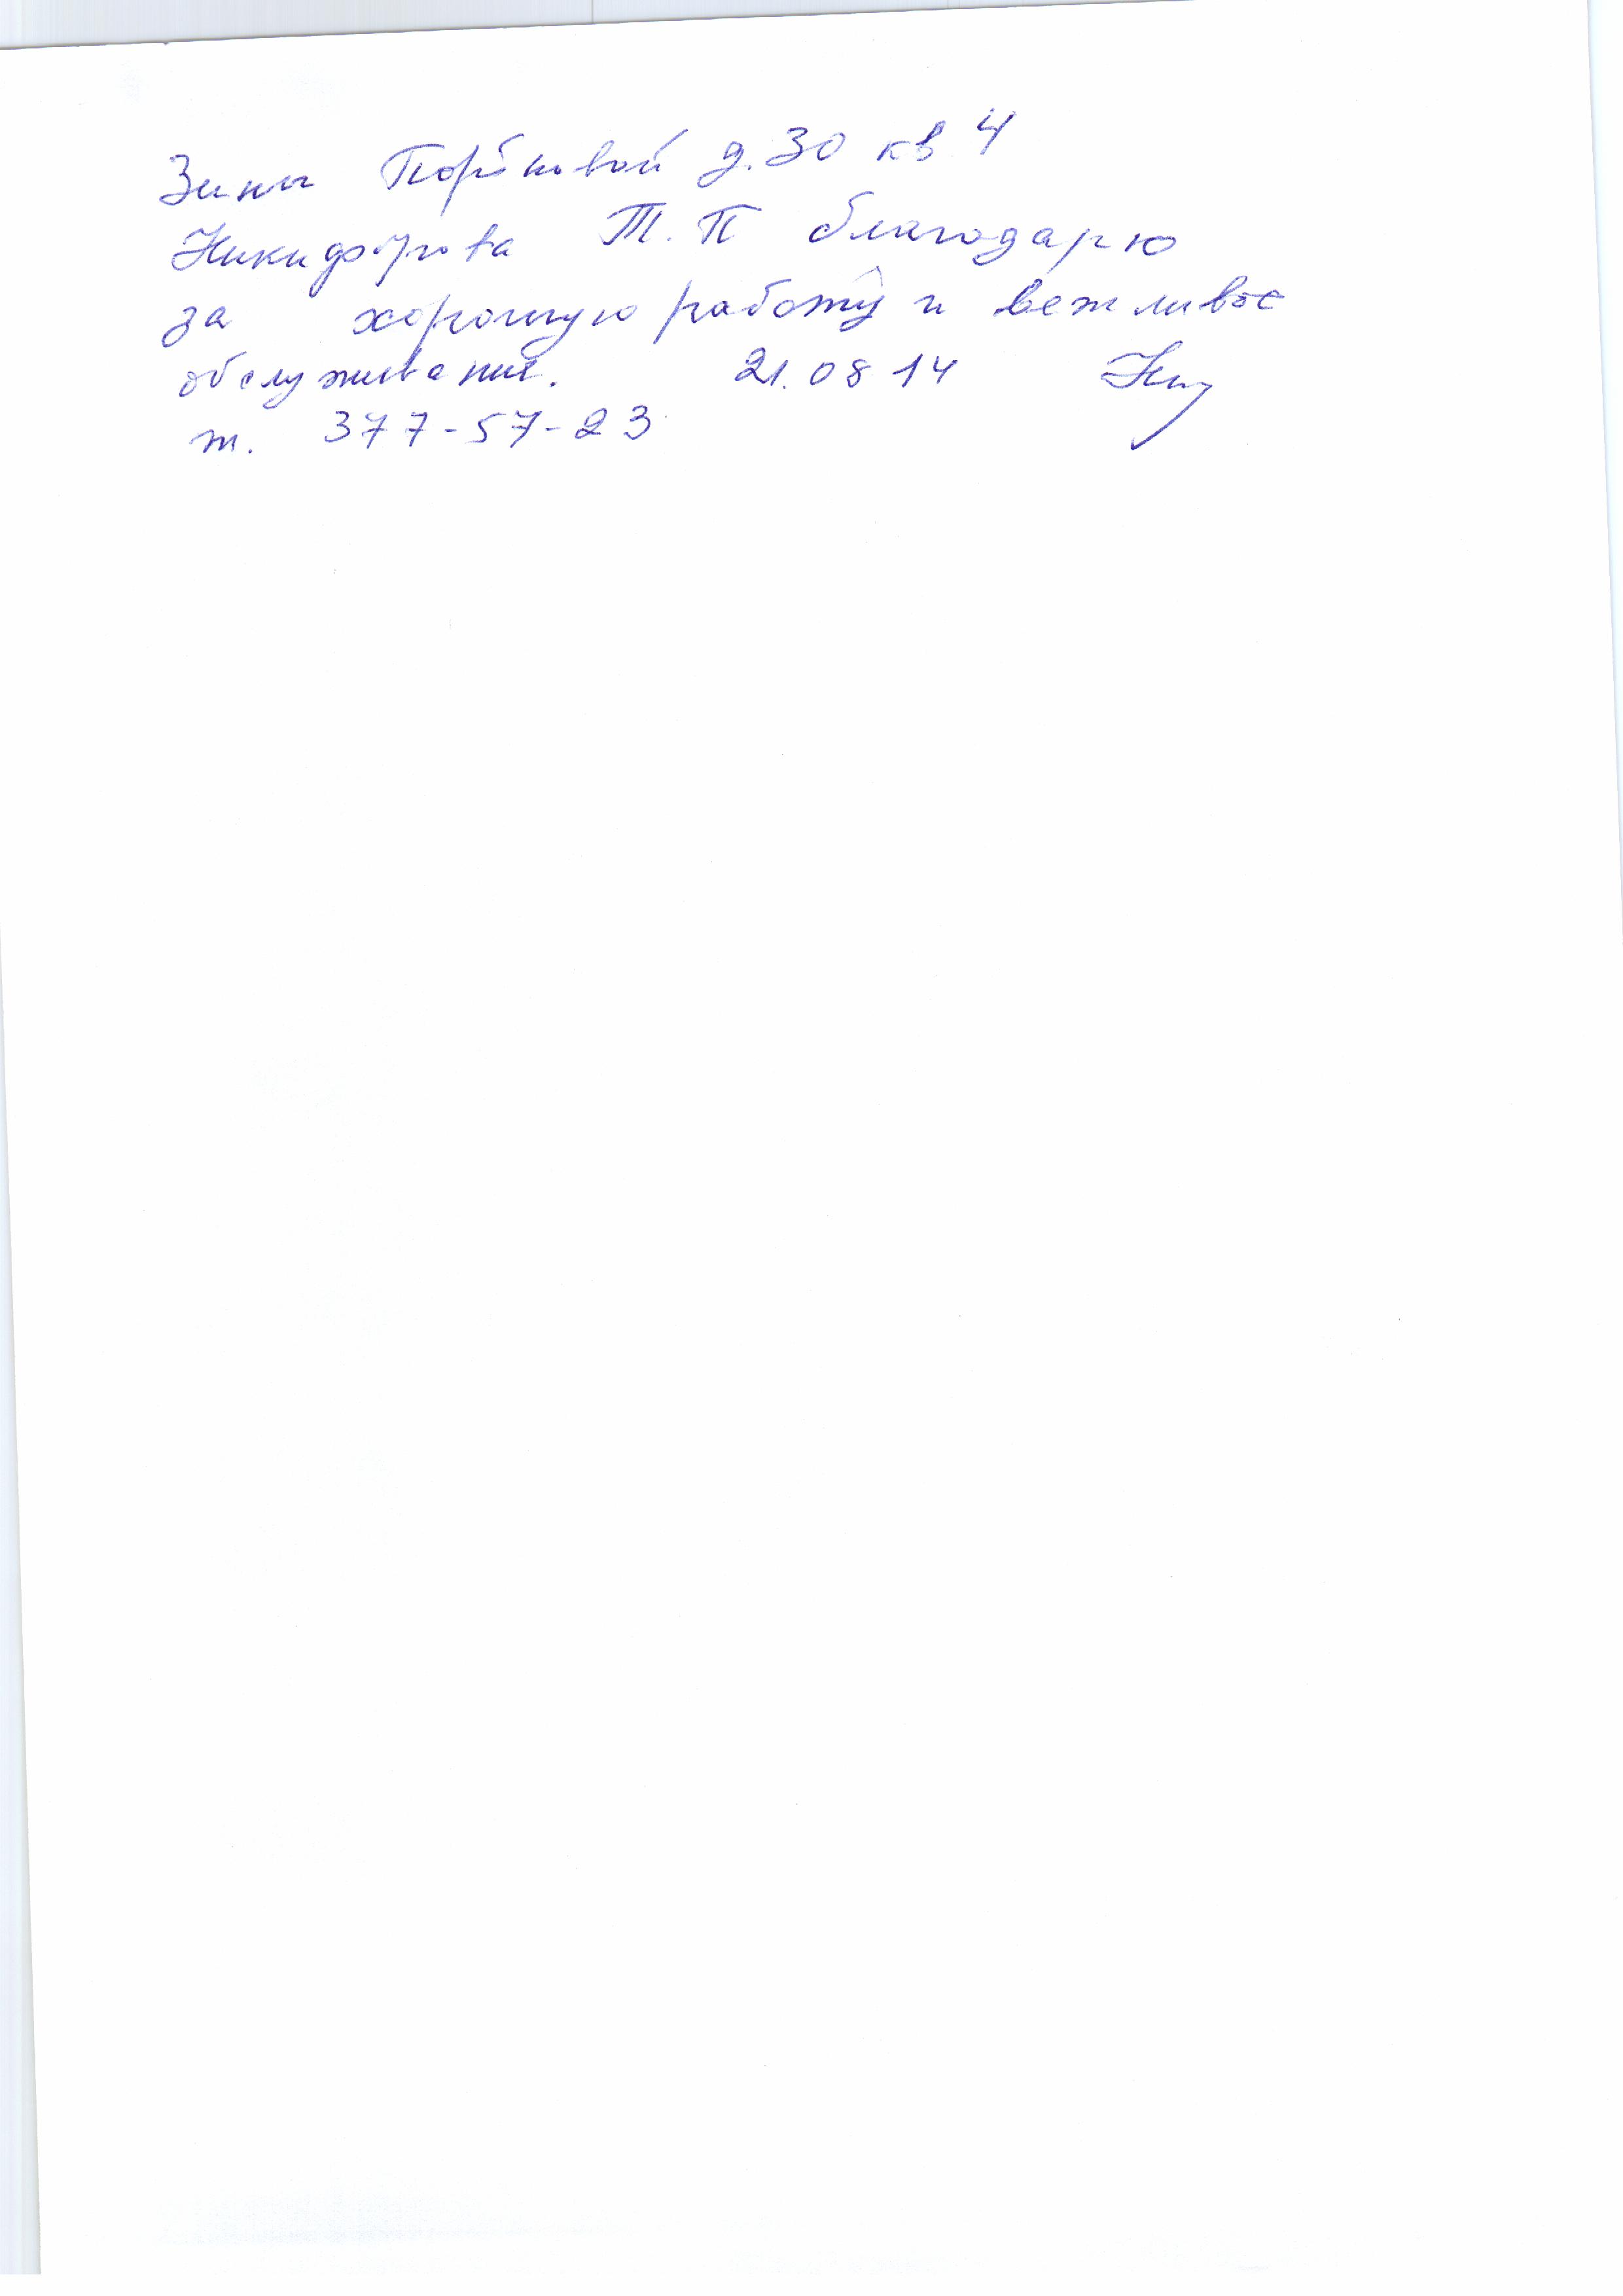 Зины Портновой д. 30 кв 4
Никифорова Т. П благодарю
за хорошую работу и вежливое
обслуживание. 21.08 14
т. 377-57-23